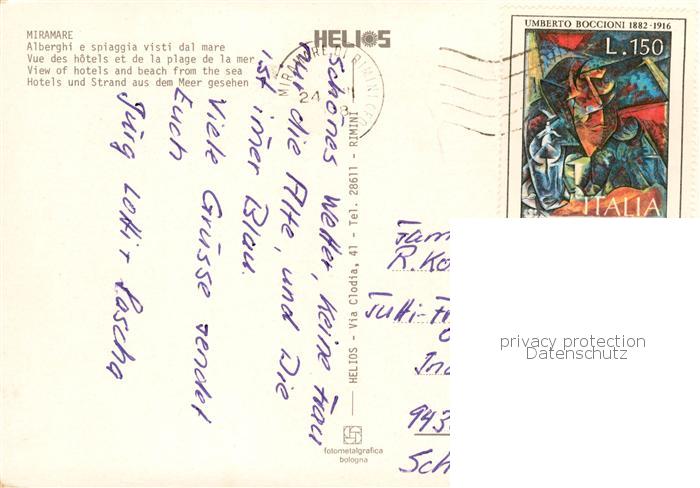 MIRAMARE
Alberghi e spiaggia visti dal mare
Vue des hôtels et de la plage de la mer
View of hotels and beach from the sea
Hotels und Strand aus dem Meer gesehen
HELIOS
UMBERTO BOCCIONI 1882-1916
L.150
ITALIA
MIRAMARE DI RIMINI
24
8
Schönes Wetter, keine Frau
nur die Alte, und Die
ist imer Blau.
Viele Grüsse sendet
Euch
Jürg Lotti + Sascha
HELIOS - Via Clodia, 41 - Tel. 28611 - RIMINI
Fam
R. Ko
Tutti-Fr
In
943
Sch
privacy protection
Datenschutz
fotometalgrafica
bologna